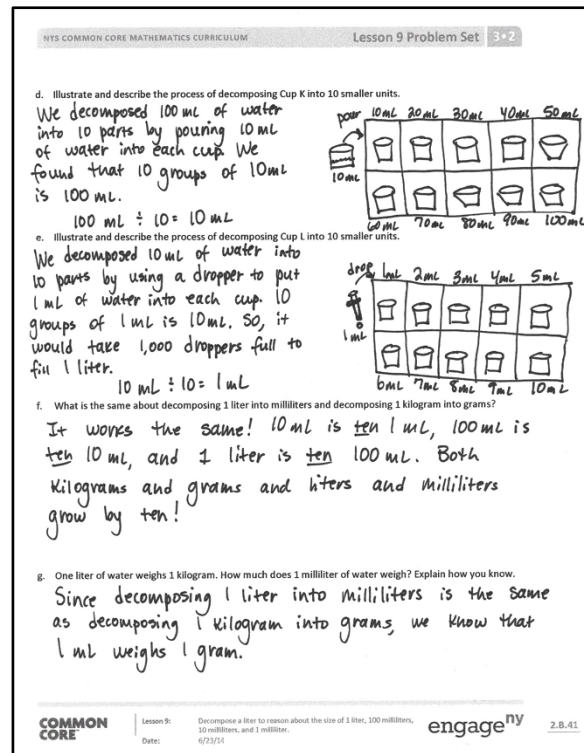 NYS COMMON CORE MATHEMATICS CURRICULUM
Lesson 9 Problem Set 3•2
d. Illustrate and describe the process of decomposing Cup K into 10 smaller units.
We decomposed 100 mL of water
into 10 parts by pouring 10 mL
of water into each cup. We
found that 10 groups of 10mL
is 100 mL.
100 mL ÷ 10 = 10 mL
pour 10mL 20mL 30mL 40mL 50mL
10mL
60mL 70mL 80mL 90mL 100mL
e. Illustrate and describe the process of decomposing Cup L into 10 smaller units.
We decomposed 10 mL of water into
10 parts by using a dropper to put
1 mL of water into each cup. 10
groups of 1 mL is 10mL. So, it
would take 1,000 droppers full to
fill 1 liter.
10 mL ÷ 10 = 1 mL
drop 1mL 2mL 3mL 4mL 5mL
1mL
6mL 7mL 8mL 9mL 10mL
f. What is the same about decomposing 1 liter into milliliters and decomposing 1 kilogram into grams?
It works the same! 10 mL is ten 1 mL, 100 mL is
ten 10 mL, and 1 liter is ten 100 mL. Both
Kilograms and grams and liters and milliliters
grow by ten!
g. One liter of water weighs 1 kilogram. How much does 1 milliliter of water weigh? Explain how you know.
Since decomposing 1 liter into milliliters is the same
as decomposing 1 kilogram into grams, we know that
1 mL weighs 1 gram.
COMMON
CORE™
Lesson 9: Decompose a liter to reason about the size of 1 liter, 100 milliliters,
10 milliliters, and 1 milliliter.
Date: 6/23/14
engage ny
2.B.41